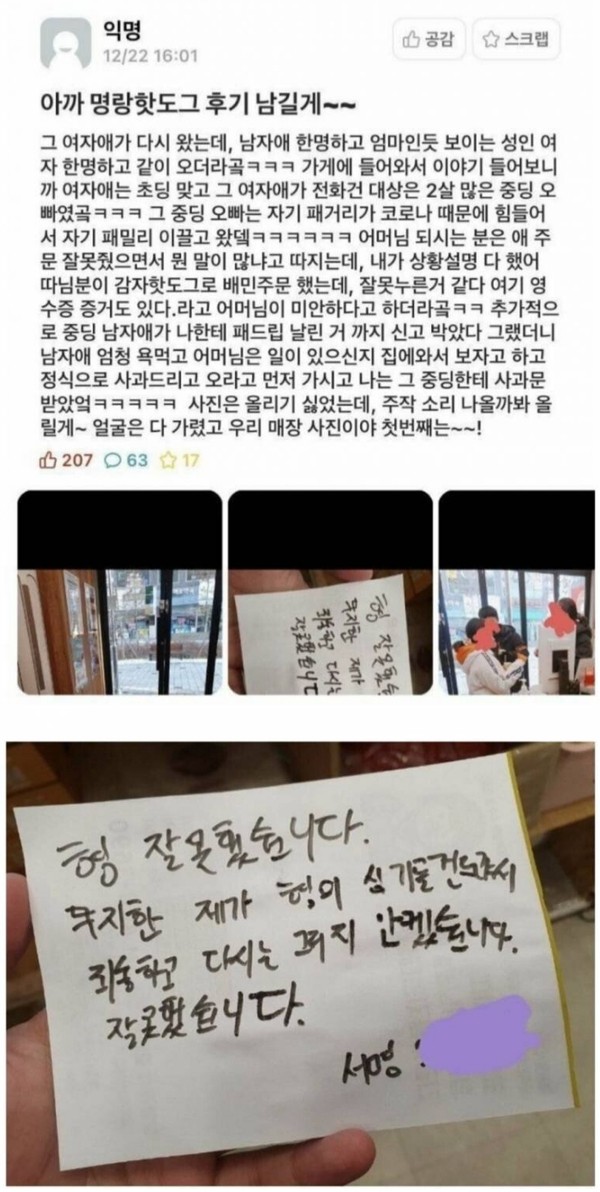 익명
12/22 16:01
공감
스크랩
아까 명랑핫도그 후기 남길게~~
그 여자애가 다시 왔는데, 남자애 한명하고 엄마인듯 보이는 성인 여
자 한명하고 같이 오더라곸ㅋㅋㅋ 가게에 들어와서 이야기 들어보니
까 여자애는 초딩 맞고 그 여자애가 전화건 대상은 2살 많은 중딩 오
빠였곸ㅋㅋㅋ 그 중딩 오빠는 자기 패거리가 코로나 때문에 힘들어
서 자기 패밀리 이끌고 왔뎈ㅋㅋㅋㅋㅋㅋ 어머님 되시는 분은 애 주
문 잘못줬으면서 뭔 말이 많냐고 따지는데, 내가 상황설명 다 했어
따님분이 감자핫도그로 배민주문 했는데, 잘못누른거 같다 여기 영
수증 증거도 있다.라고 어머님이 미안하다고 하더라곸ㅋㅋ 추가적으
로 중딩 남자애가 나한테 패드립 날린 거 까지 신고 박았다 그랬더니
남자애 엄청 욕먹고 어머님은 일이 있으신지 집에와서 보자고 하고
정식으로 사과드리고 오라고 먼저 가시고 나는 그 중딩한테 사과문
받았엌ㅋㅋㅋㅋㅋ 사진은 올리기 싫었는데, 주작 소리 나올까봐 올
릴게~ 얼굴은 다 가렸고 우리 매장 사진이야 첫번째는~~!
207 63 17
형 잘못했습니다.
무지한 제가
죄송하고 다시는
잘못했습니다
형 잘못했습니다.
무지한 제가 형의 심기를건드려서
죄송하고 다시는 그러지 안켔습니다.
잘못했습니다.
서명 :